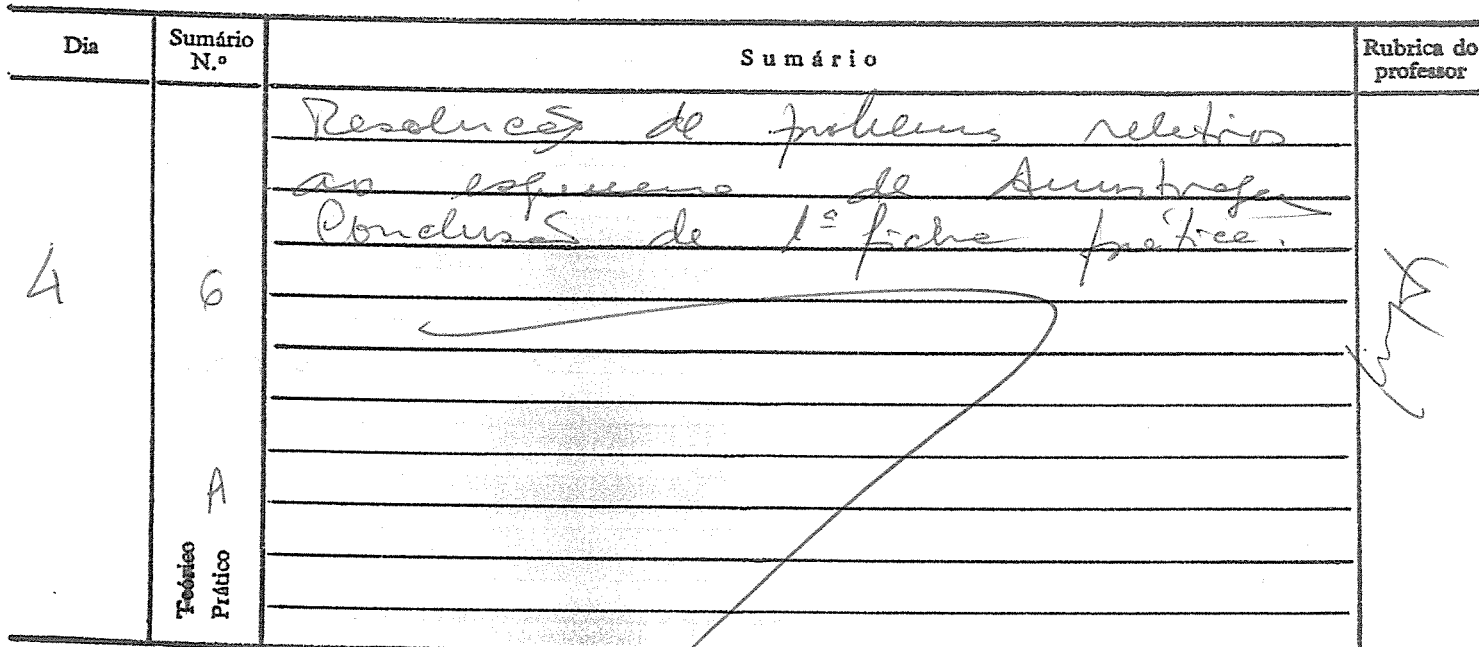 Dia
Sumário N.º
Sumário
Rubrica do professor
4
6
A
Teórico
Prático
Resolução de problemas relativos
ao esquema de Amostragem
Conclusão da 1ª ficha prática.